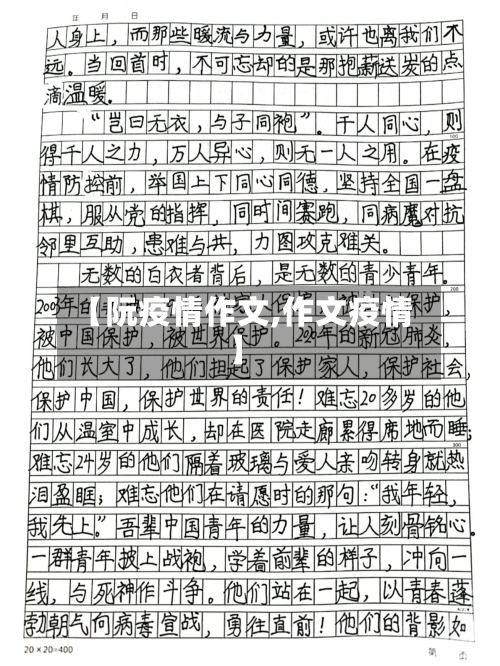 年 月 日
人身上，而那些暖流与力量，或许也离我们不
远。当回首时，不可忘却的是那抱薪送炭的点
滴温暖.
“岂曰无衣，与子同袍”。千人同心，则
100
得千人之力，万人异心，则无一人之用。在疫
情防控前，举国上下同心同德，坚持全国一盘
棋，服从党的指挥，同时间赛跑，同病魔对抗
邻里互助，患难与共，力图攻克难关。
无数的白衣者背后，是无数的青少青年。
200
2003年的
保护，
【阮疫情作文,作文疫情
】
被中国保护，被世界保护。2020年的新冠肺炎，
他们长大了，他们担起了保护家人，保护社会，
保护中国，保护世界的责任！难忘20多岁的他
们从温室中成长，却在医院走廊累得席地而睡；
300
难忘24岁的他们隔着玻璃与爱人亲吻转身就热
泪盈眶；难忘他们在请愿时的那句：“我年轻，
我先上。”吾辈中国青年的力量，让人刻骨铭心。
一群青年披上战袍，学着前辈的样子，冲向一
线，与死神作斗争。他们站在一起，以青春蓬
勃朝气向病毒宣战，勇往直前！他们的背影如
20×20=400
第 页